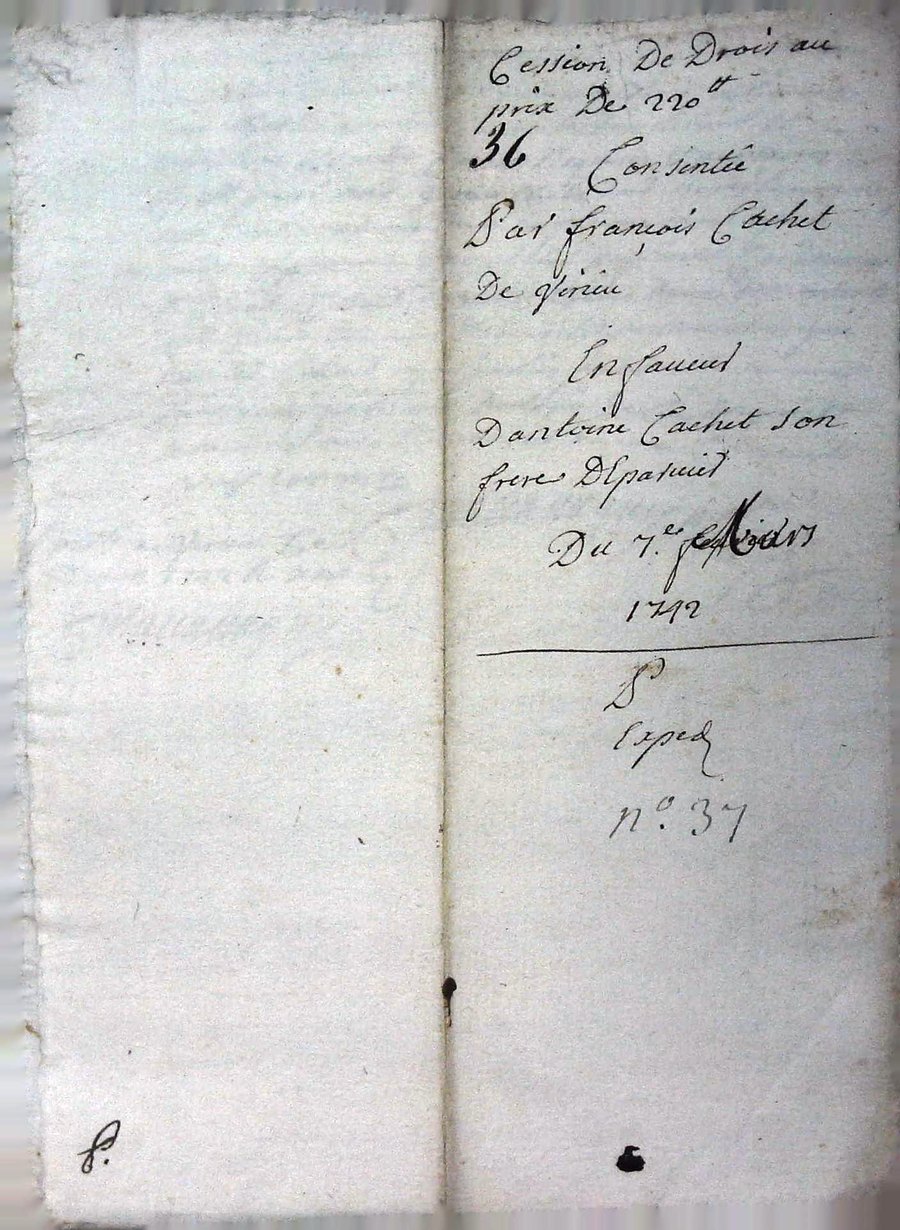 Cession De Drois au
prix De 220 tt
36 Consentie
Par françois Cachet
De virieu
En faveur
Dantoine Cachet son
frere DEparvier
Du 7.e Mars
1742
P
Exped
n.o 37
P.